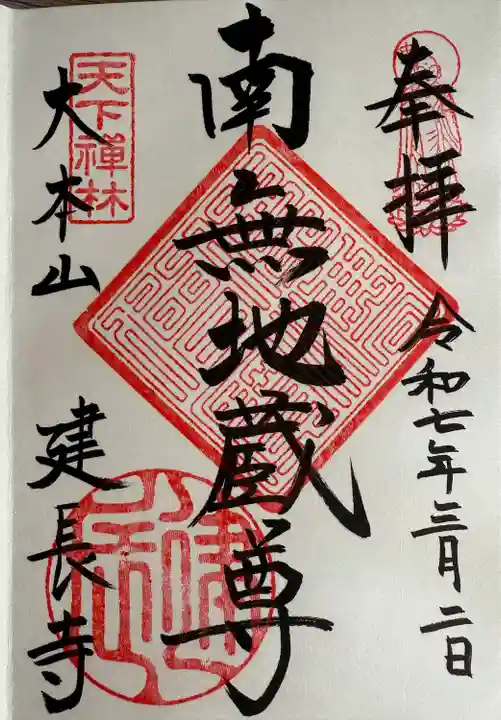 奉拝
令和七年三月二日
南無地蔵尊
天下禅林
大本山
建長寺